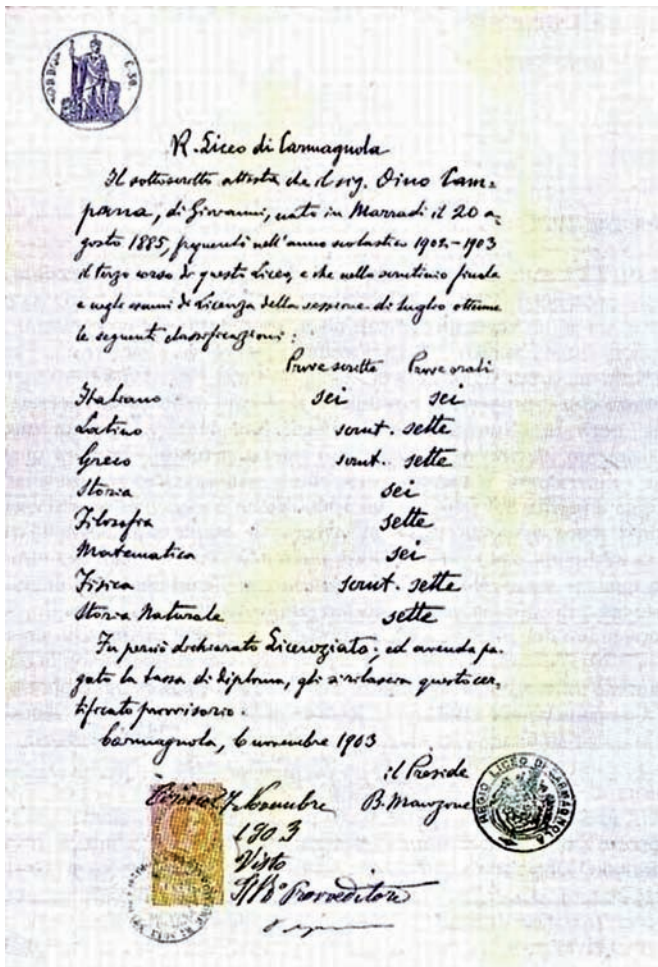 C. 50.
R. Liceo di Carmagnola
Il sottoscritto attesta che il sig. Dino Cam=
pana, di Giovanni, nato in Marradi il 20 a=
gosto 1885, frequentò nell'anno scolastico 1902-1903
il terzo corso di questo Liceo, e che nello scrutinio finale
e negli esami di Licenza della sessione di luglio ottenne
le seguenti classificazioni:
Prove scritte Prove orali
Italiano sei sei
Latino scrut. sette
Greco scrut. sette
Storia sei
Filosofia sette
Matematica sei
Fisica scrut. sette
Storia Naturale sette
Fu perciò dichiarato Licenziato; ed avendo pa=
gato la tassa di diploma, gli si rilascia questo cer=
tificato provvisorio
Carmagnola, 6 novembre 1903
il Preside
B. Marzone
REGIO LICEO DI CARMAGNOLA
Torino 7 Novembre
1903
Visto
Provveditore